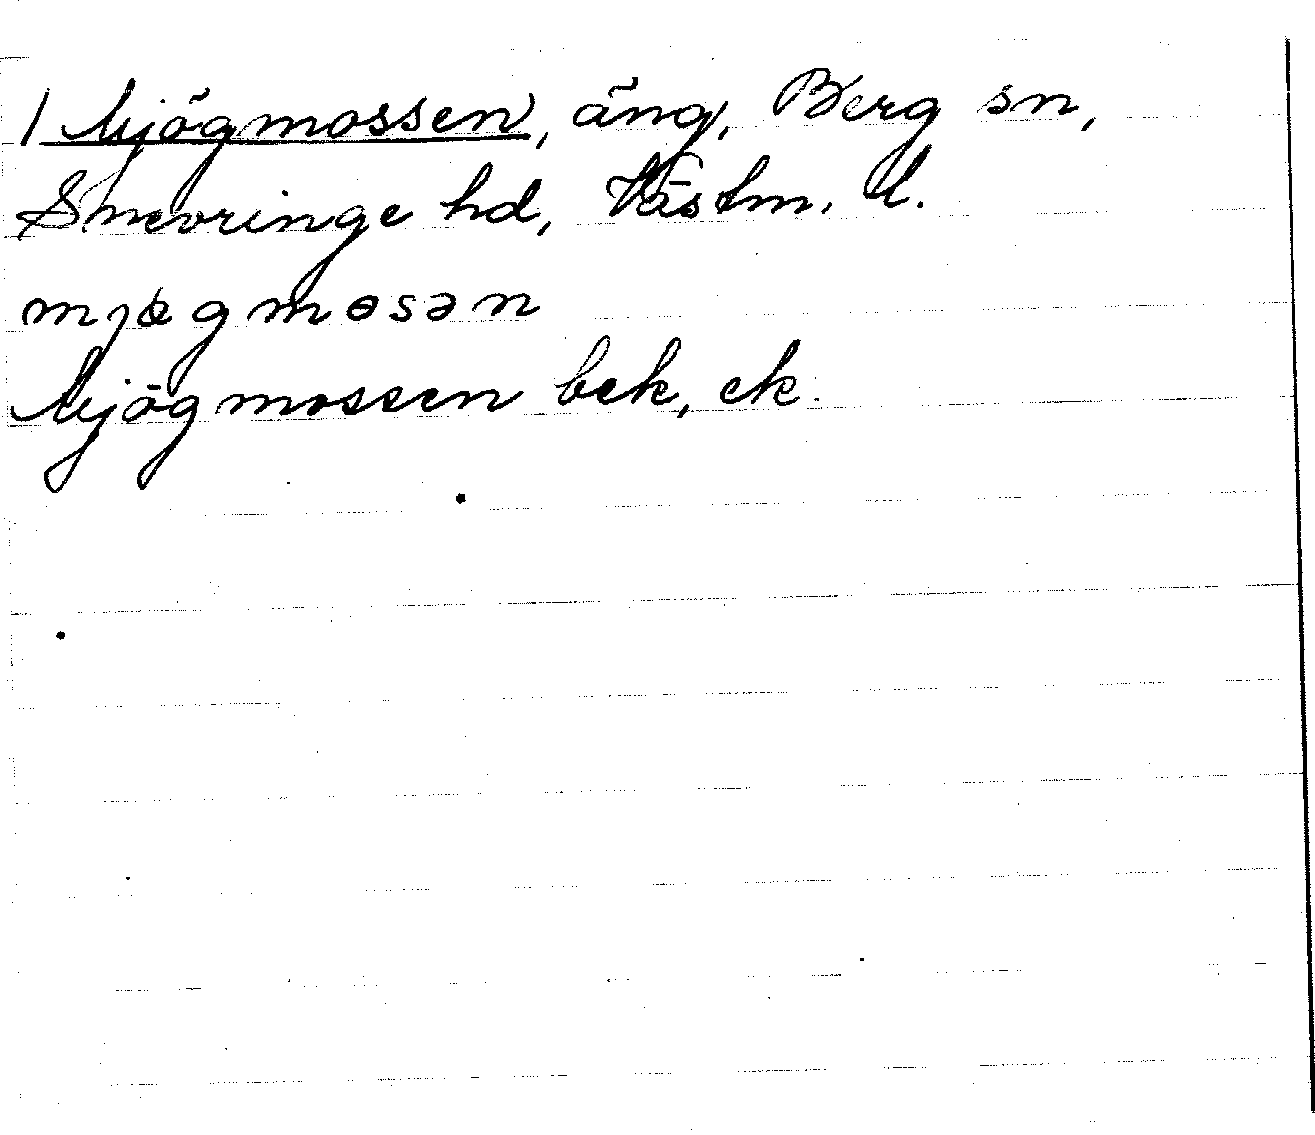 1 Mjögmossen, äng, Berg sn,
Snevringe hd, Västm. l.
mjøgmɵsən
Mjögmossen bek, ek.